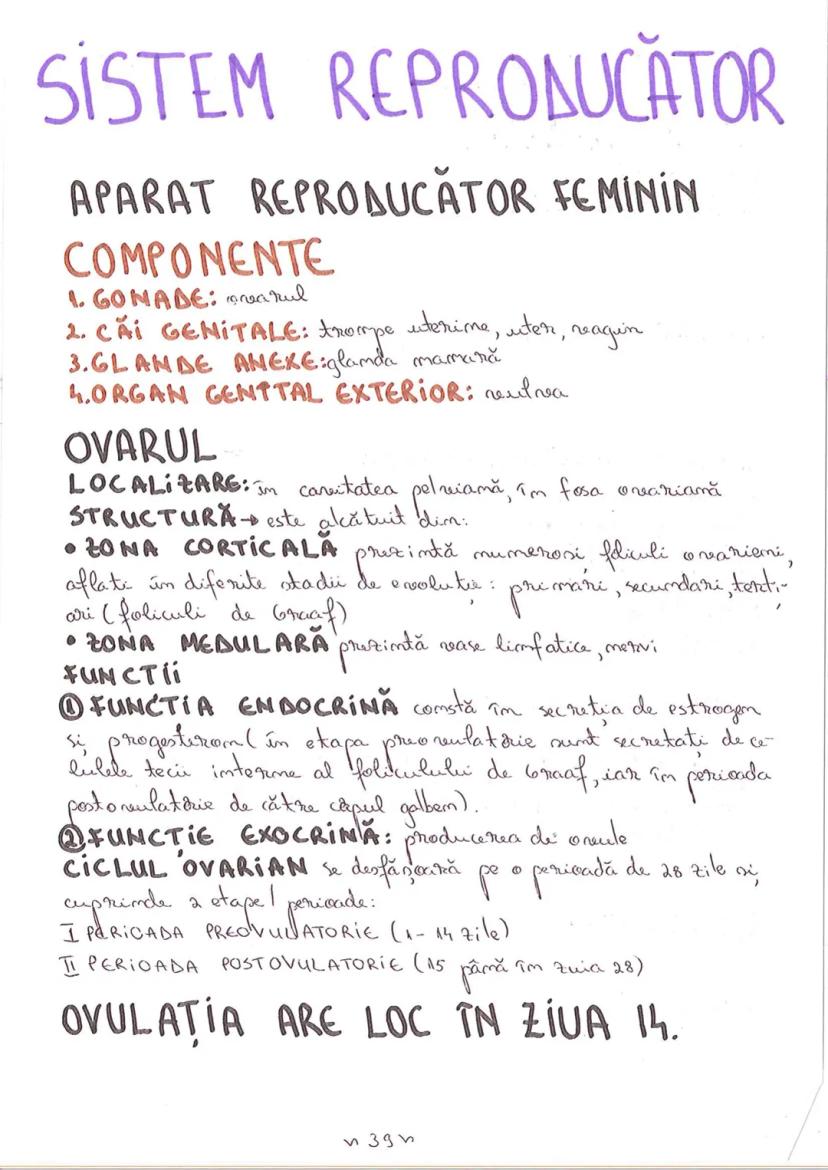 SISTEM REPRODUCĂTOR
APARAT REPRODUCĂTOR FEMININ
COMPONENTE
1. GONADE: ovarul
2. CĂI GENITALE: trompe uterine, uter, vagin
3. GLANDE ANEXE: glanda mamară
4. ORGAN GENITAL EXTERIOR: vulva
OVARUL
LOCALIZARE: în cavitatea pelviană, în fosa ovariană
STRUCTURĂ → este alcătuit din:
• ZONA CORTICALĂ prezintă numeroși foliculi ovarieni,
aflați în diferite stadii de evoluție: primari, secundari, terți-
ari (foliculi de Graaf)
• ZONA MEDULARĂ prezintă vase limfatice, nervi
FUNCȚII
① FUNCȚIA ENDOCRINĂ constă în secreția de estrogen
și progesteron (în etapa preovulatorie sunt secretați de ce-
lulele tecii interne al foliculului de Graaf, iar în perioada
postovulatorie de către corpul galben).
② FUNCȚIE EXOCRINĂ: producerea de ovule
CICLUL OVARIAN se desfășoară pe o perioadă de 28 zile și
cuprinde 2 etape/perioade:
I PERIOADA PREOVULATORIE (1-14 zile)
II PERIOADA POSTOVULATORIE (15 până în ziua 28)
OVULAȚIA ARE LOC ÎN ZIUA 14.
~ 39 ~